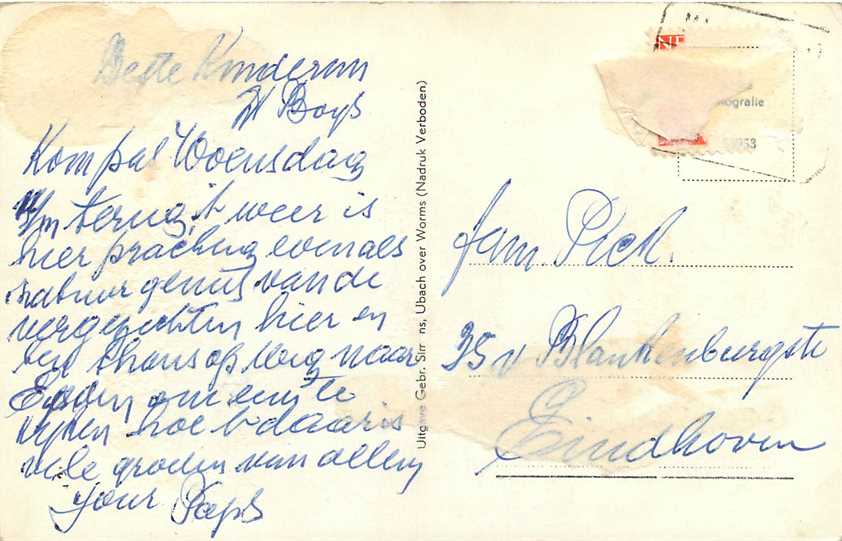 Beste Kinderen
Boys
Kom pas Woensdag
terug, 't weer is
hier prachtig evenals
natuur geniet van de
vergezichten hier en
ben thans op weg naar
Epen om eens te
zien hoe 't daar is
vele groeten van allen
your Paps
Uitgave Gebr. Sim ns, Ubach over Worms (Nadruk Verboden)
ografie
fam. Pick.
35 v Blankenburgstr
Eindhoven